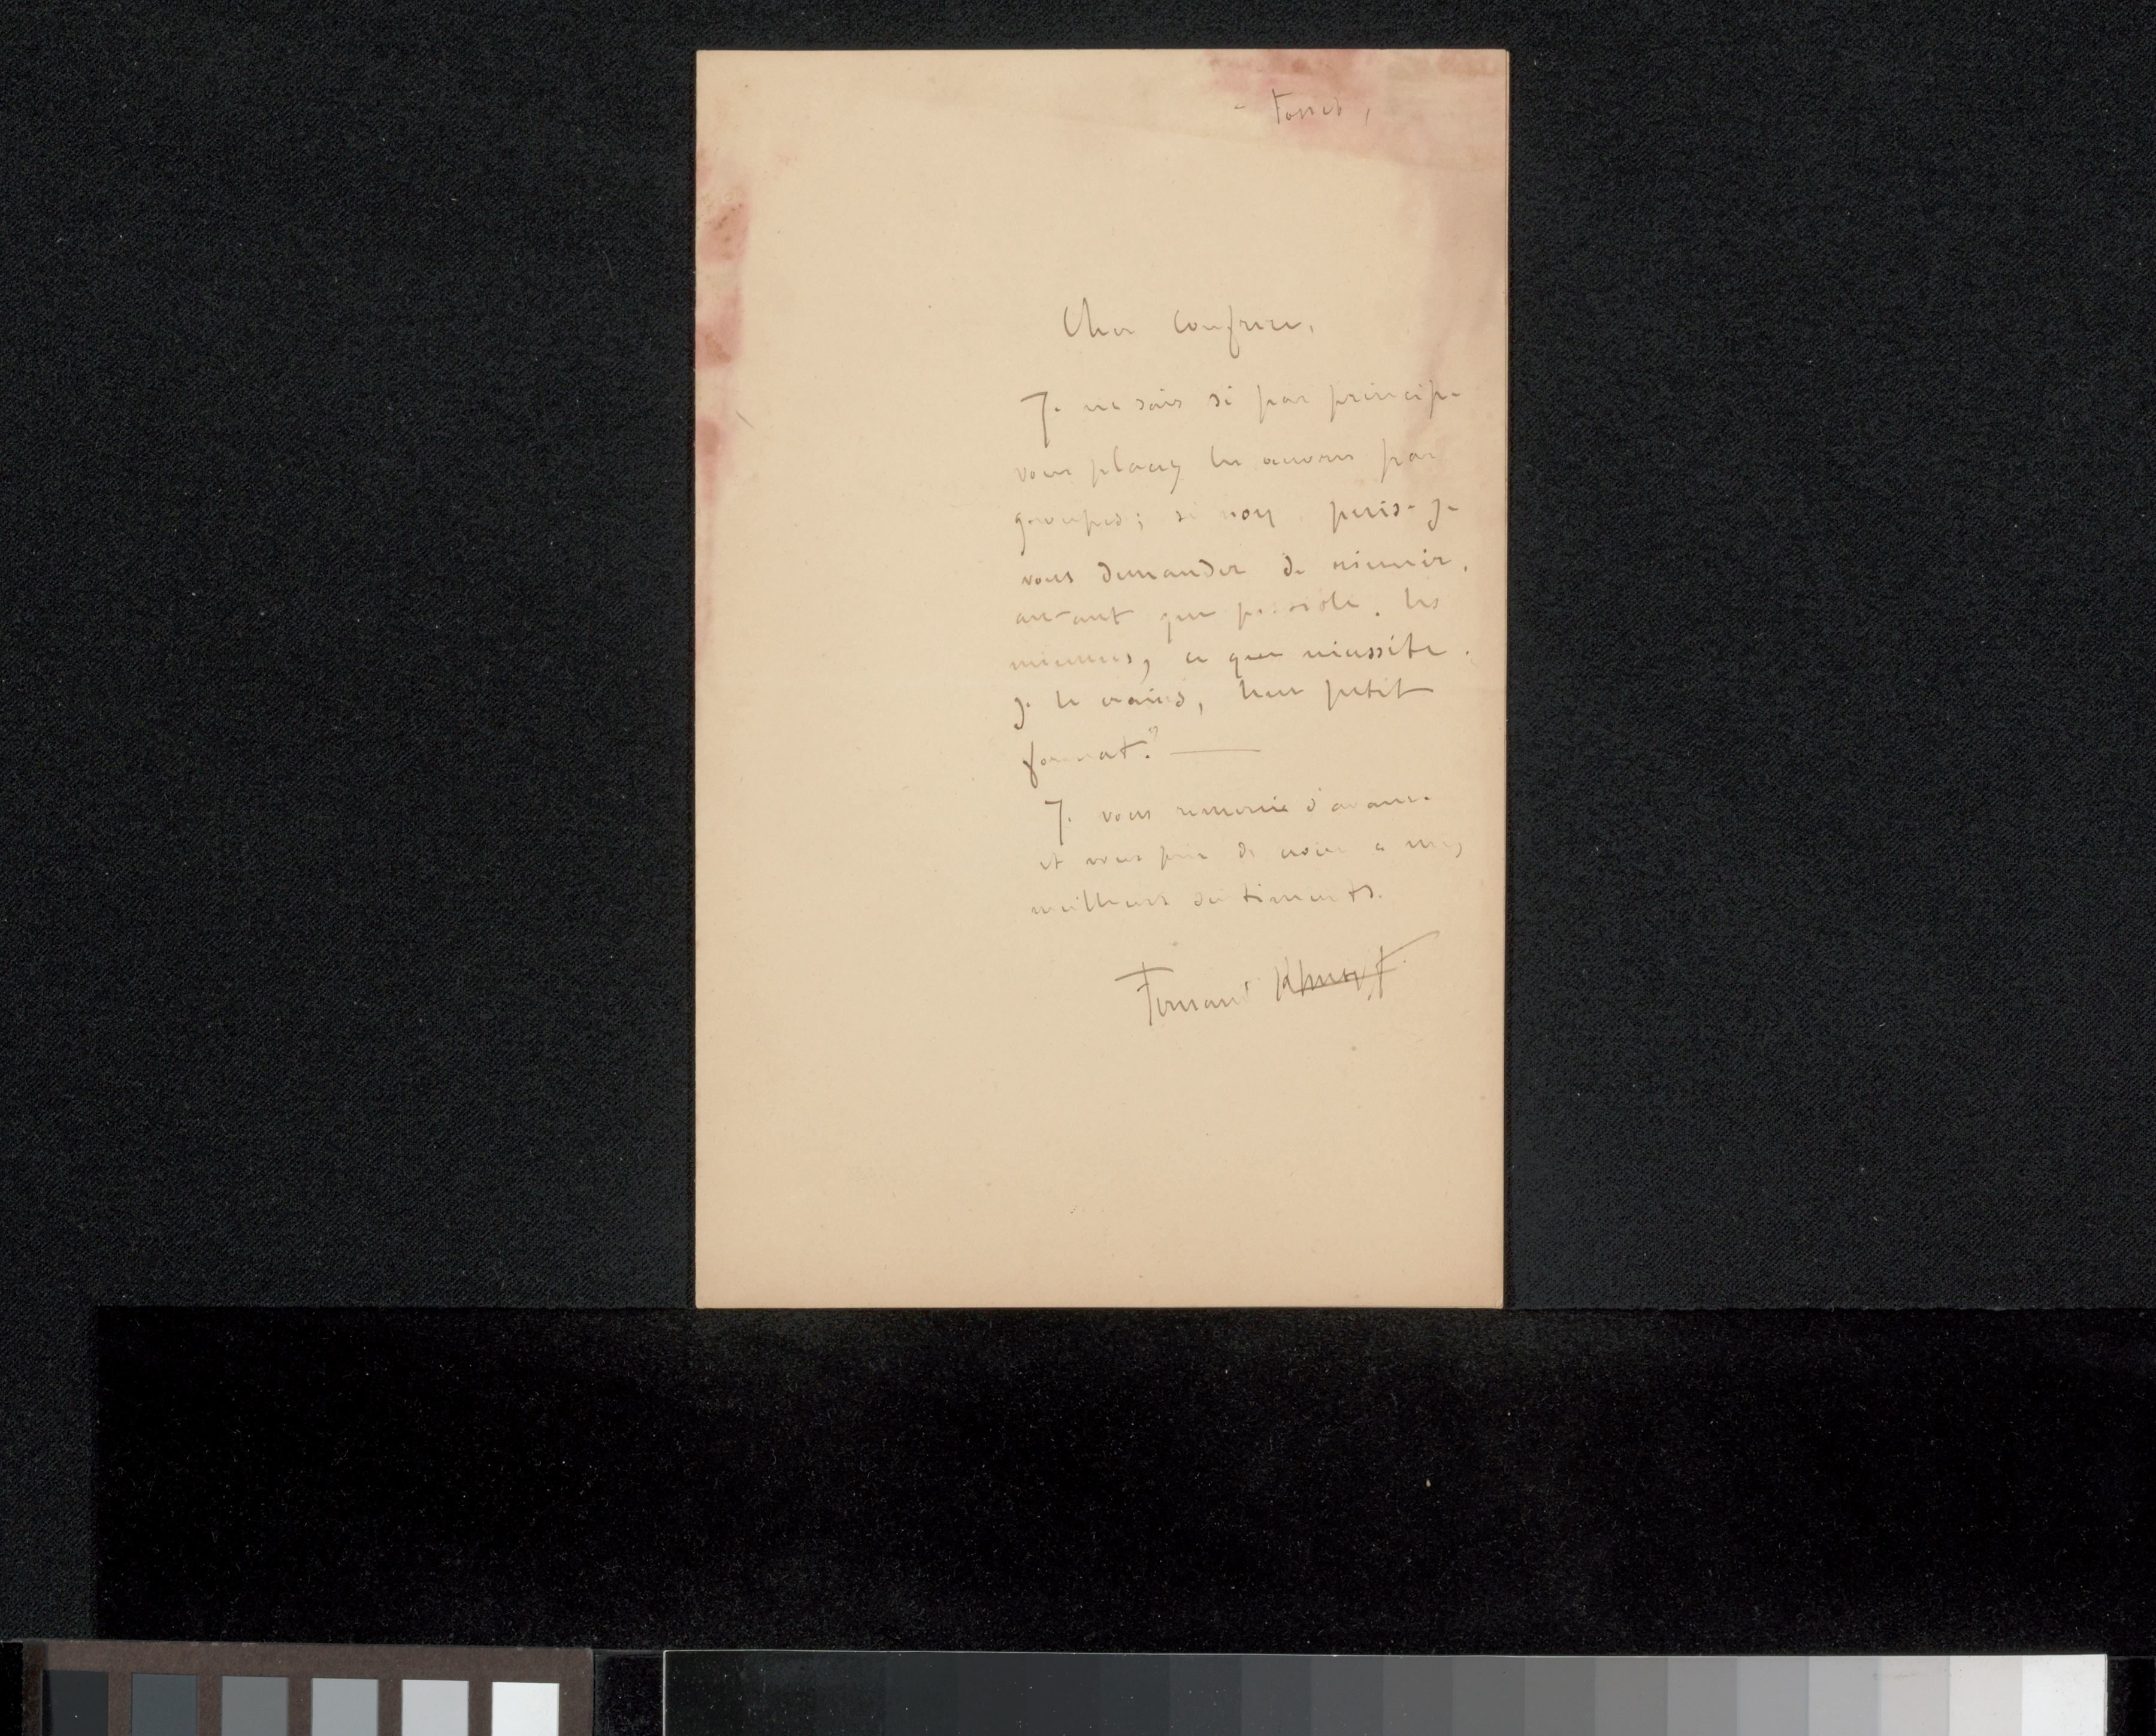 Cher confrère,
Je ne sais si par principe
vous placez les œuvres par
groupes; si non, puis-je
vous demander de réunir,
autant que possible, les
miennes, ce que nécessite,
je le crains, leur petit
format? —
Je vous remercie d'avance
et vous prie de croire à mes
meilleurs sentiments.
Fernand Khnopff